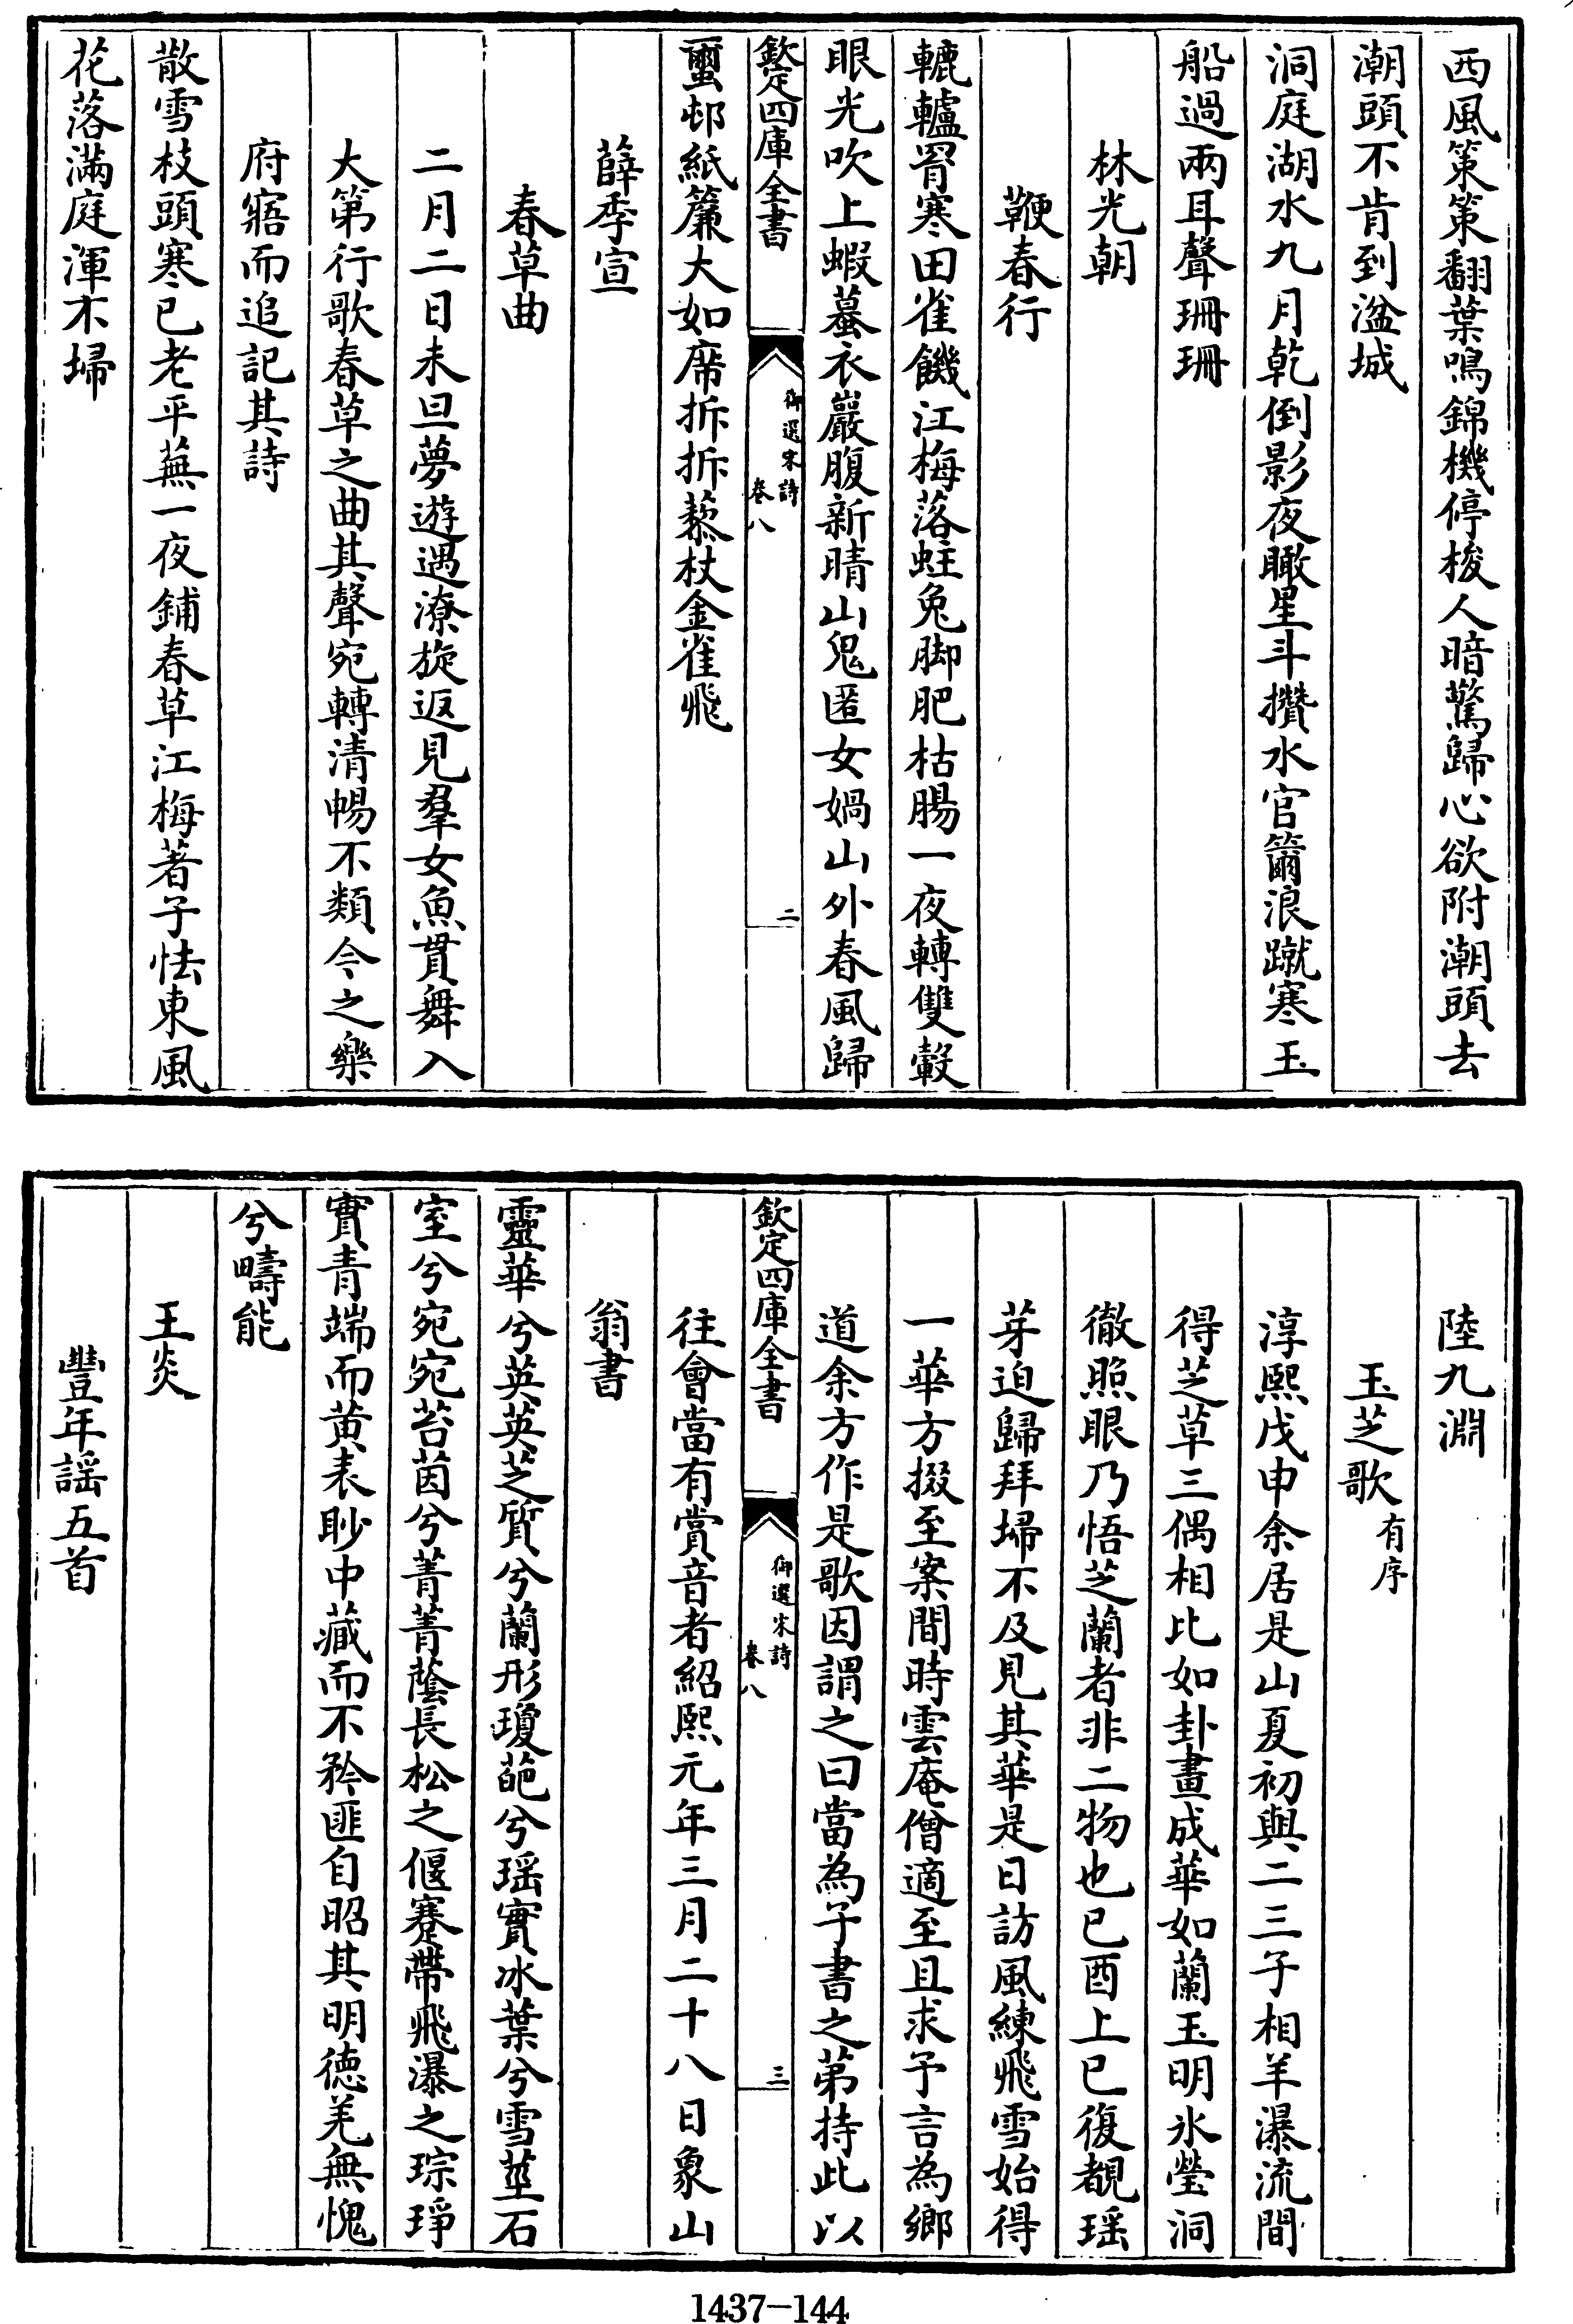 西風策策翻葉鳴錦機停梭人暗驚歸心欲附潮頭去
潮頭不肯到湓城
洞庭湖水九月乾倒影夜瞰星斗攢水官籋浪蹴寒玉
船過兩耳聲珊珊
林光朝
鞭春行
轆轤罥寒田雀饑江梅落蛀兔脚肥枯腸一夜轉雙轂
眼光吹上蝦蟇衣巖腹新晴山鬼匿女媧山外春風歸
欽定四庫全書
御選宋詩
卷八
二
蠒邨紙簾大如席拆拆藜杖金雀飛
薛季宣
春草曲
二月二日未旦夢遊遇潦旋返見羣女魚貫舞入
大第行歌春草之曲其聲宛轉清暢不類今之樂
府寤而追記其詩
散雪枝頭寒已老平蕪一夜鋪春草江梅著子怯東風
花落滿庭渾不埽
陸九淵
玉芝歌有序
淳熙戊申余居是山夏初與二三子相羊瀑流間
得芝草三偶相比如卦畫成華如蘭玉明氷瑩洞
徹照眼乃悟芝蘭者非二物也已酉上巳復覩瑶
芽迫歸拜埽不及見其華是日訪風練飛雪始得
一華方掇至案間時雲庵僧適至且求予言為鄉
道余方作是歌因謂之曰當為子書之第持此以
欽定四庫全書
御選宋詩
卷八
三
往會當有賞音者紹熙元年三月二十八日象山
翁書
靈華兮英英芝質兮蘭形瓊葩兮瑶實冰葉兮雪莖石
室兮宛宛苔茵兮菁菁蔭長松之偃蹇帶飛瀑之琮琤
實青端而黄表眇中藏而不矜匪自昭其明徳羌無愧
兮疇能
王炎
豐年謡五首
1437-144